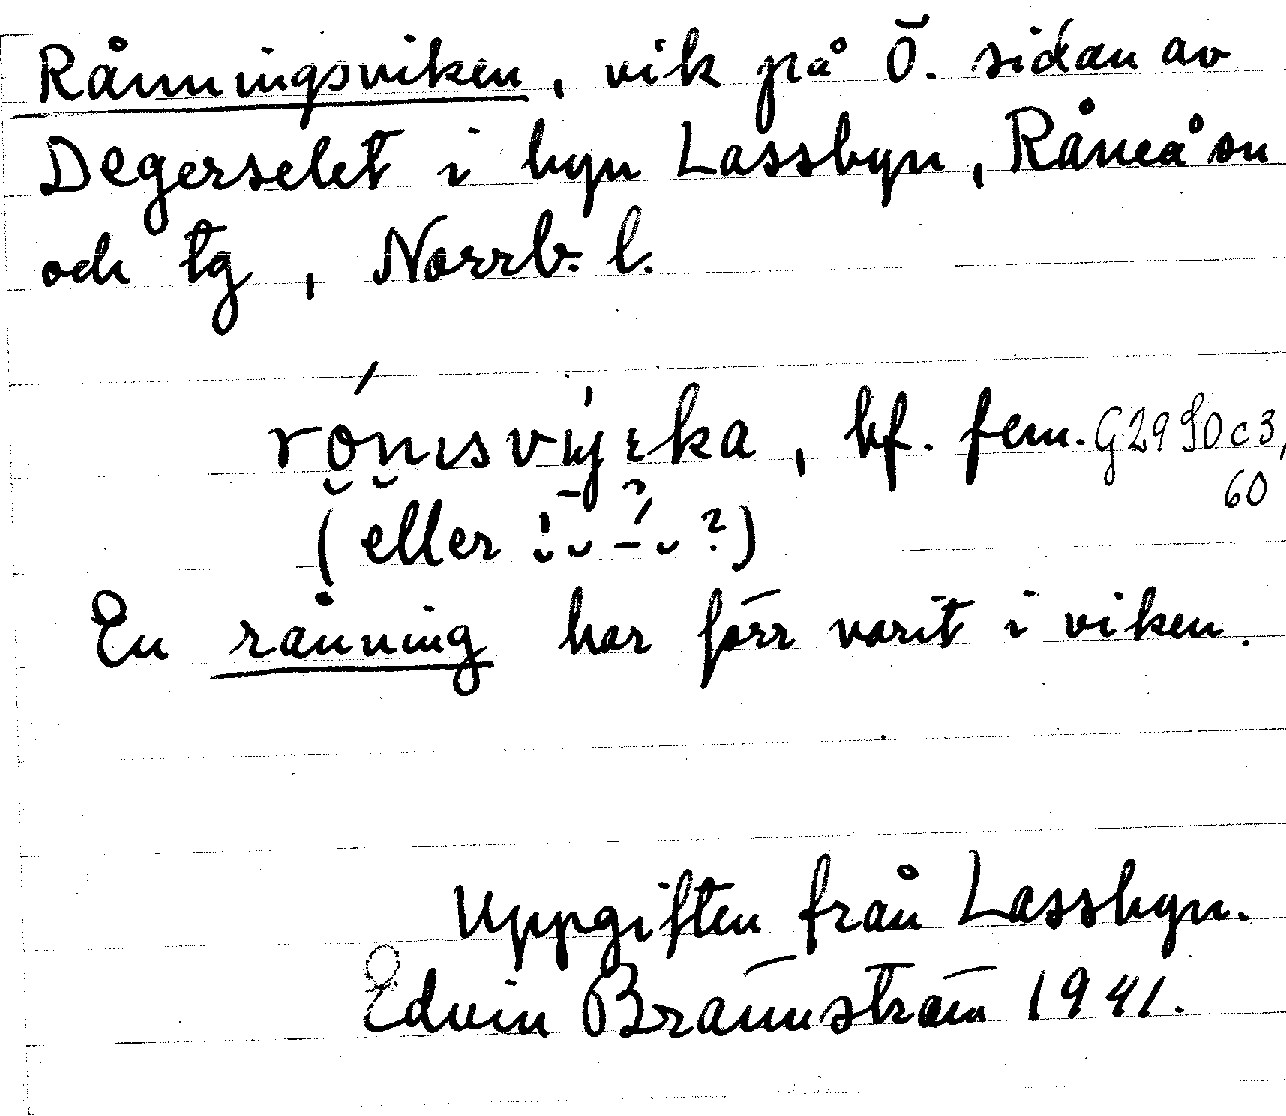 Rånningsviken, vik på Ö. sidan av
Degerselet i byn Lassbyn, Råneå sn
och tg, Norrb. l.
bf. fem. G2950c3,
60
(eller
En rånning har förr varit i viken.
Uppgiften från Lassbyn.
Edvin Brännström 1941.